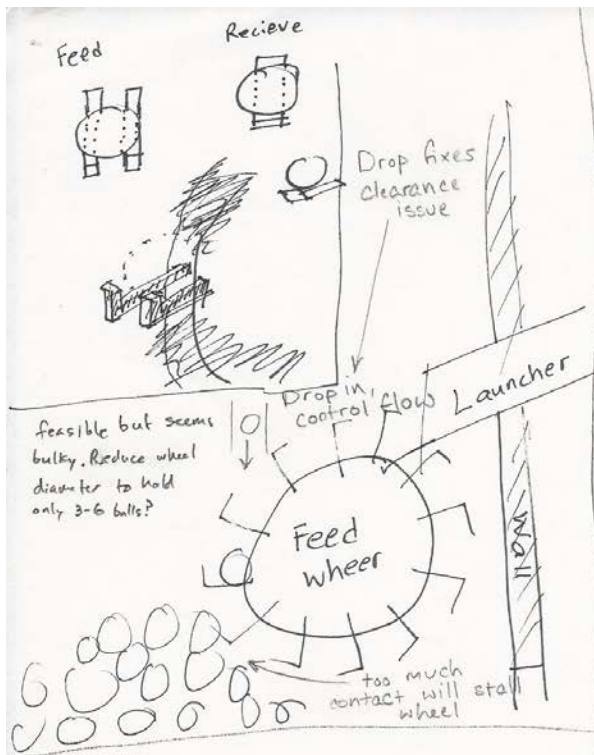 Feed
Recieve
Drop fixes
clearance
issue
Launcher
Drop in,
control flow
feasible but seems
bulky. Reduce wheel
diameter to hold
only 3-6 balls?
Feed
wheer
Wall
too much
contact will stall
wheel